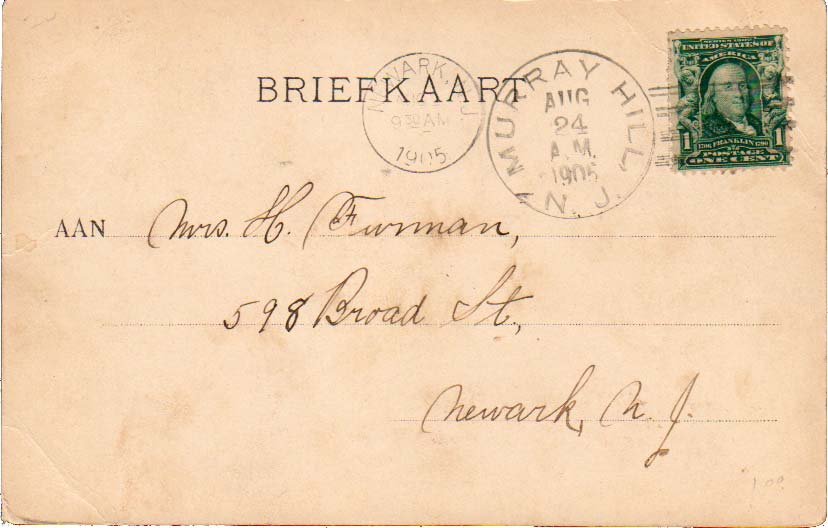 BRIEFKAART
NEWARK, N.J.
9 30 AM
1905
MURRAY HILL, N. J.
AUG
24
A.M.
1905
SERIES 1902
UNITED STATES OF
AMERICA
1 1706 FRANKLIN 1790 1
POSTAGE
ONE CENT
AAN Mrs. H. Furman,
598 Broad St.,
Newark, N. J.
1.00